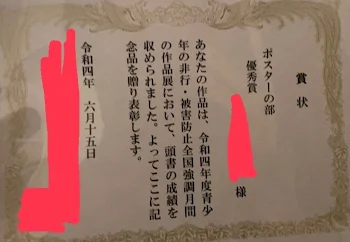 賞状
ポスターの部
優秀賞
様
あなたの作品は、令和四年度青少
年の非行・被害防止全国強調月間
の作品展において、頭書の成績を
収められました。よってここに記
念品を贈り表彰します。
令和四年 六月十五日